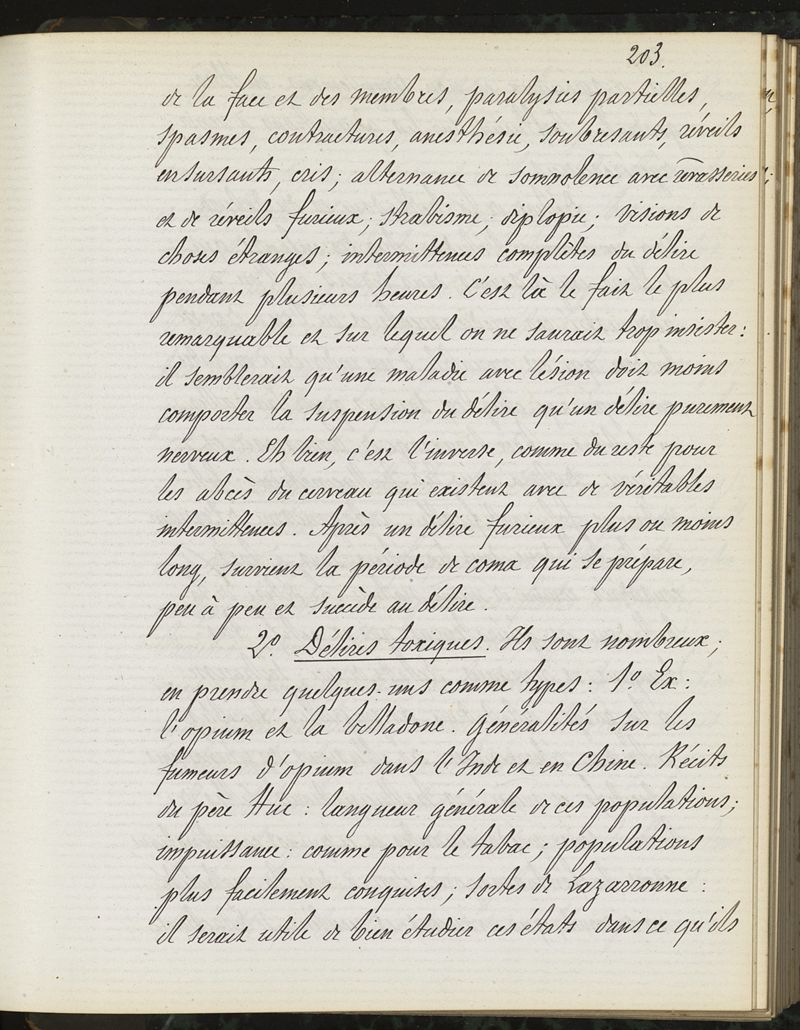 203.
de la face et des membres, paralysies partielles,
spasmes, contractures, anesthésie, soubresauts, réveils
en sursauts, cris; alternance de somnolence avec rêvasseries;
et de réveils furieux; strabisme; diplopie; visions de
choses étranges; intermittences complètes du délire
pendant plusieurs heures. C'est là le fait le plus
remarquable et sur lequel on ne saurait trop insister:
il semblerait qu'une maladie avec lésion doit moins
comporter la suspension du délire qu'un délire purement
nerveux. Eh bien, c'est l'inverse, comme du reste pour
les abcès du cerveau qui existent avec de véritables
intermittences. Après un délire furieux plus ou moins
long, survient la période de coma qui se prépare,
peu à peu et succède au délire.
2º. Délires toxiques. Ils sont nombreux;
en prendre quelques-uns comme types: 1º Ex:
l'opium et la belladone. Généralités sur les
fumeurs d'opium dans l'Inde et en Chine. Récits
du père Huc: langueur générale de ces populations;
impuissance: comme pour le tabac; populations
plus facilement conquises; sortes de Lazarronne:
il serait utile de bien étudier ces états dans ce qu'ils